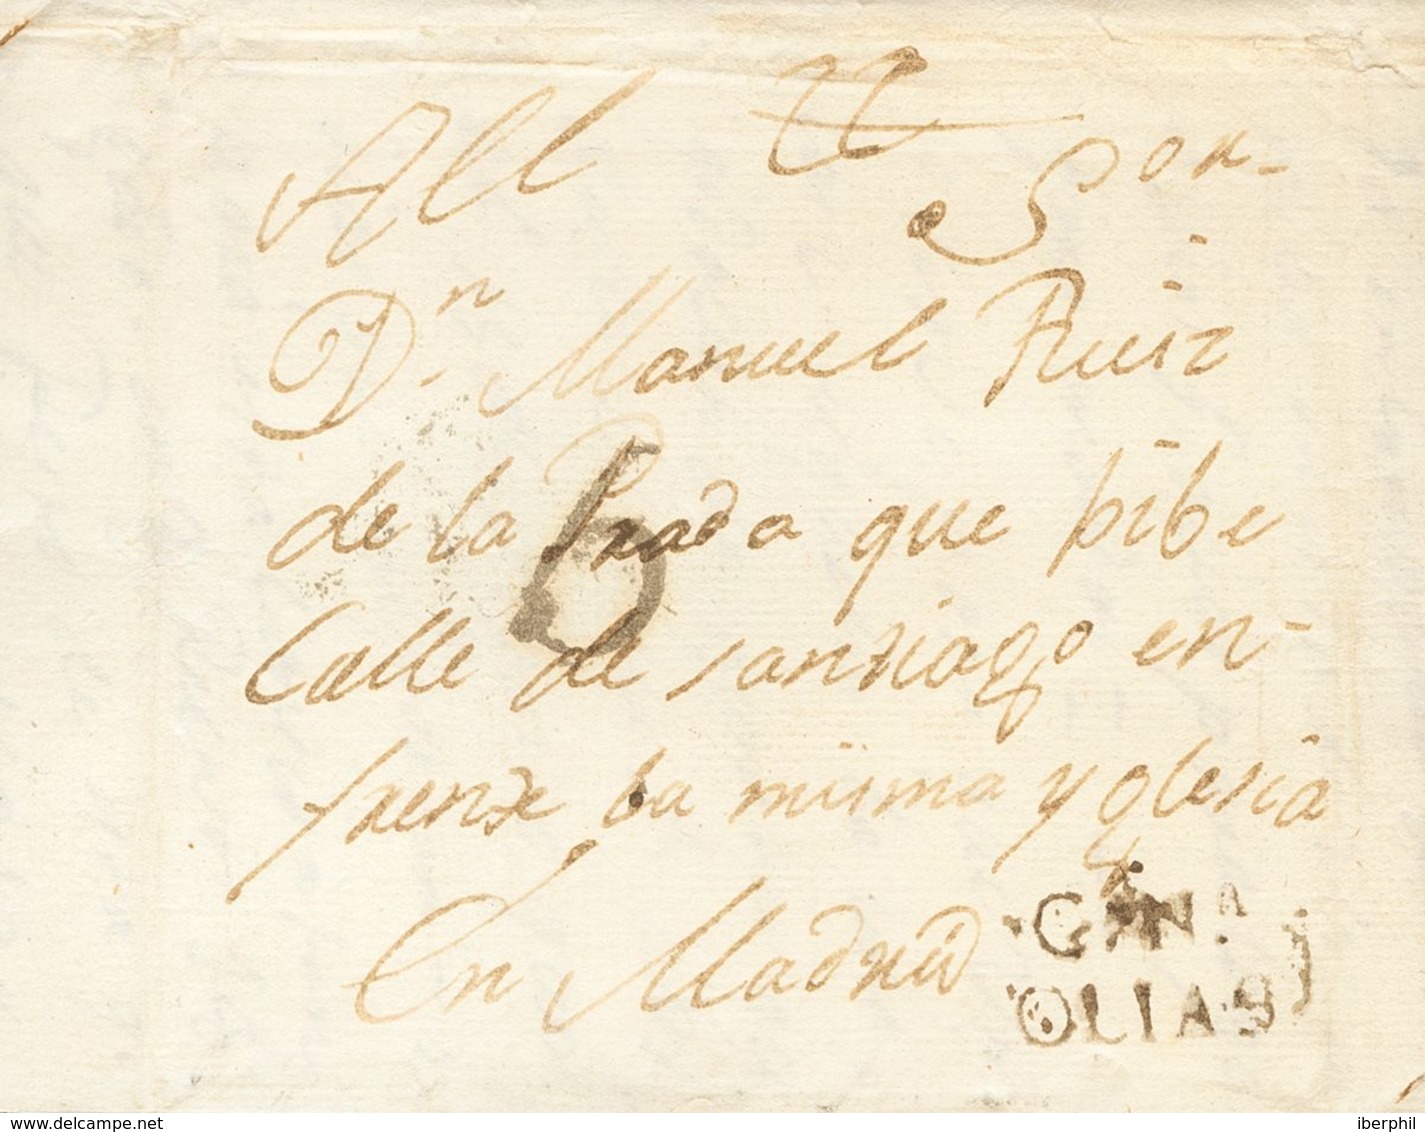 All
Sor-
Dn Manuel Ruiz
de la Prada que bibe
Calle de santiago en-
frente la misma yglesia
En Madrid
6
CAN.A
OLIAS
www.delcampe.net
iberphil